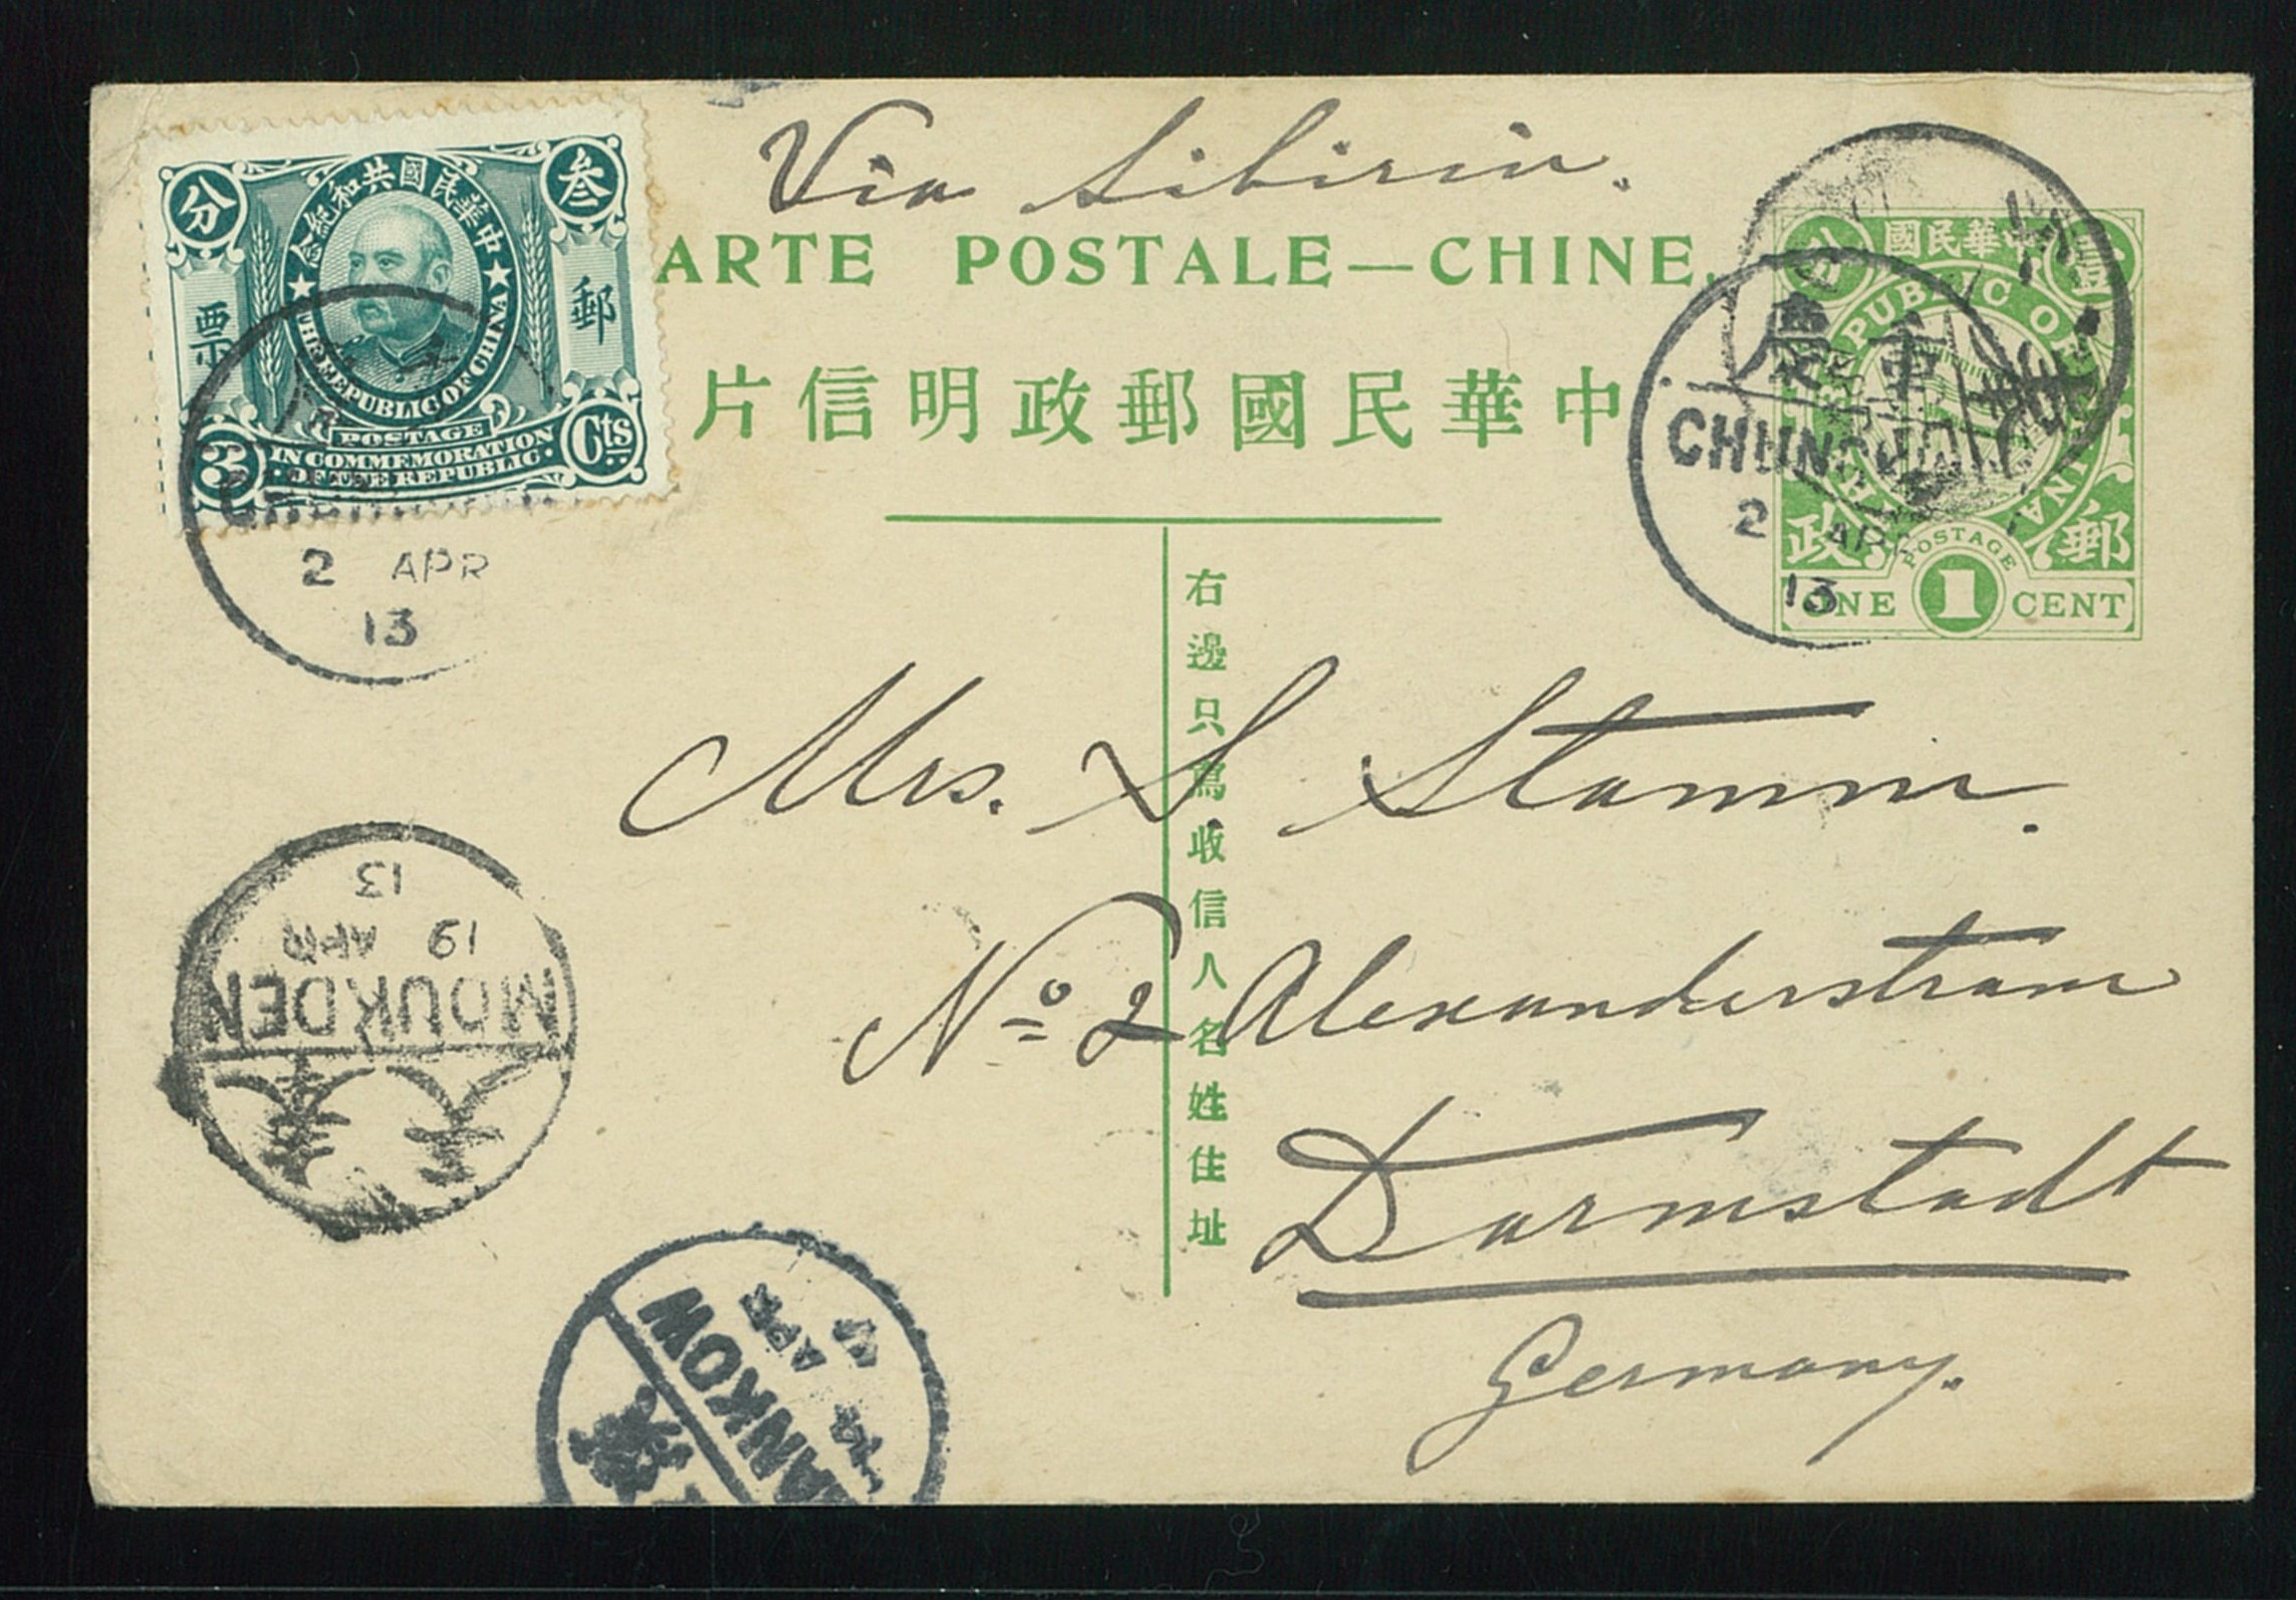 Via Sibiria.
中華民國共和紀念
叁分
郵票
THE REPUBLIC OF CHINA
POSTAGE
IN COMMEMORATION
OF THE REPUBLIC
3 Cts
2 APR
13
ARTE POSTALE—CHINE.
中華民國郵政明信片
中華民國
壹分
PUBLIC OF CHINA
郵政
POSTAGE
ONE 1 CENT
重慶
2 AP
13
右邊只寫收信人名姓住址
Mrs. S. Stamm.
Nº 2 Alexanderstrasse
Darmstadt
Germany.
MOUKDEN
19 APR
13
ANKOW
APR